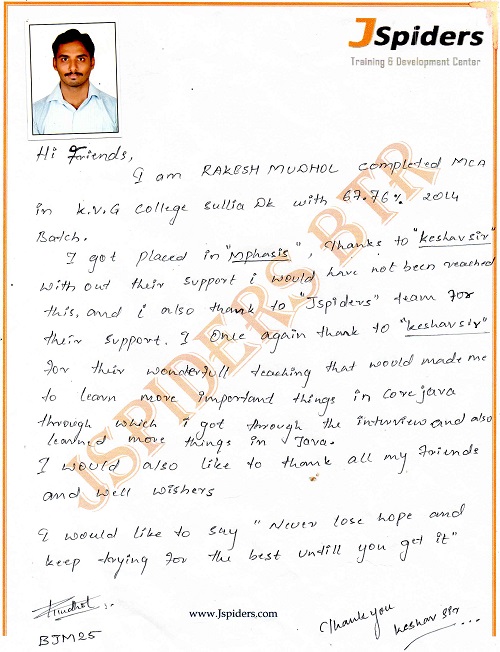 JSpiders
Training & Development Center
Hi Friends,
I am RAKESH MUDHOL completed MCA
in K.V.G College Sullia Dk with 67.76% 2014
Batch.
I got placed in "Mphasis", thanks to "keshav sir"
with out their support i would have not been reached
this, and i also thank to "Jspiders" team for
their support. I Once again thank to "keshav sir"
for their wonderfull teaching that would made me
to learn more important things in core java
through which i got through the intirview and also
learned more things in Java.
I would also like to thank all my friends
and well wishers
I would like to say "Never lose hope and
keep trying for the best untill you get it"
JSPIDERS BTR
Mudhol
BJM25
www.Jspiders.com
Thank you
keshav sir